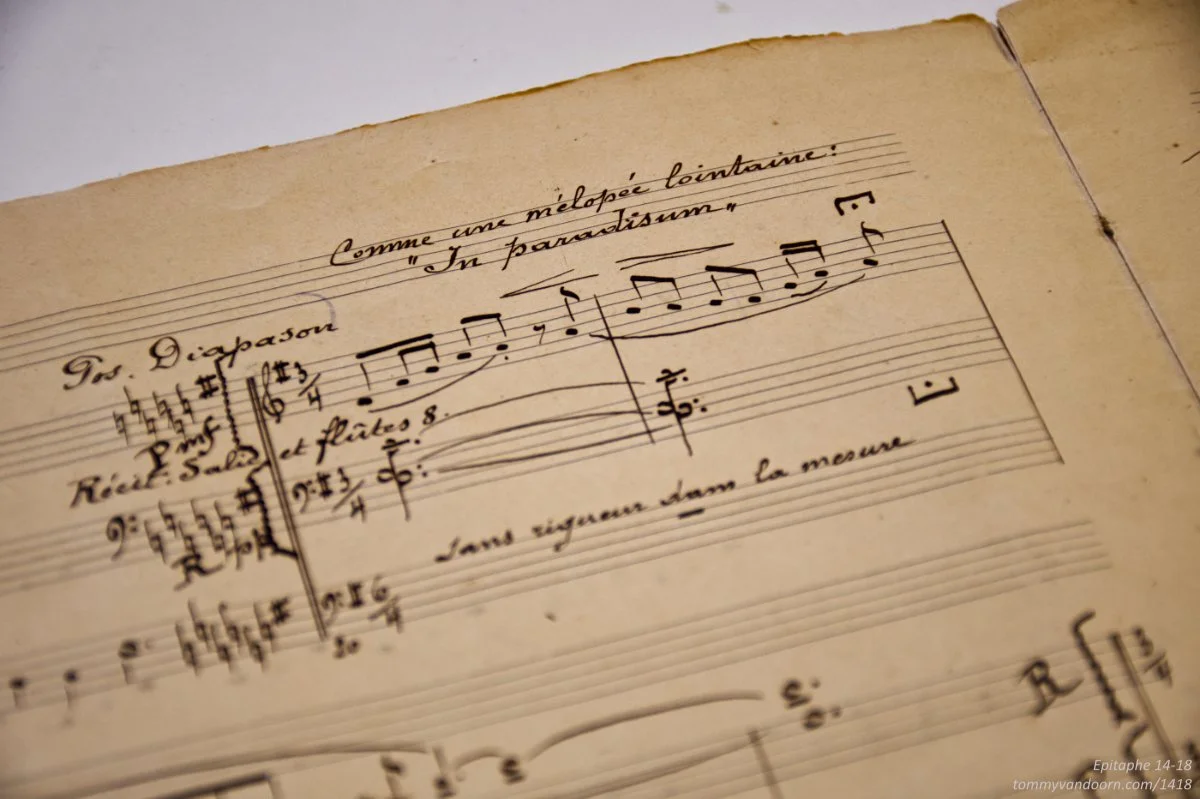 Comme une mélopée lointaine :
"In paradisum"
Pos. Diapason
3/4
P mf
Récit: Salic. et flûtes 8.
3/4
R pp
Sans rigueur dans la mesure
6/4
R
3/4
Epitaphe 14-18
tommyvandoorn.com/1418